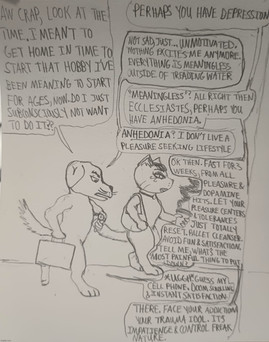 AW CRAP, LOOK AT THE
TIME, I MEANT TO
GET HOME IN TIME TO
START THAT HOBBY I'VE
BEEN MEANING TO START
FOR AGES, NOW. DO I JUST
SUBCONSCIOUSLY NOT WANT
TO DO IT?
PERHAPS YOU HAVE DEPRESSION
NOT SAD, JUST... UNMOTIVATED.
NOTHING EXCITES ME ANYMORE.
EVERYTHING IS MEANINGLESS
OUTSIDE OF TREADING WATER
"MEANINGLESS"? ALL RIGHT THEN
ECCLESIASTES, PERHAPS YOU
HAVE ANHEDONIA.
ANHEDONIA? I DON'T LIVE A
PLEASURE SEEKING LIFESTYLE
OK THEN. FAST FOR 3
WEEKS FROM ALL
PLEASURE &
DOPAMINE
HITS. LET YOUR
PLEASURE CENTERS
& TOLERANCES
JUST TOTALLY
RESET. PALLET CLEANSER.
AVOID FUN & SATISFACTION.
TELL ME, WHAT'S THE
MOST PAINFUL THING TO PUT
DOWN?
GUESS MY...
CELL PHONE. DOOM SCROLLING
& INSTANT SATISFACTION
THERE, FACE YOUR ADDICTION
YOUR TRAUMA IDOL. IT'S
IMPATIENCE & CONTROL FREAK
NATURE.